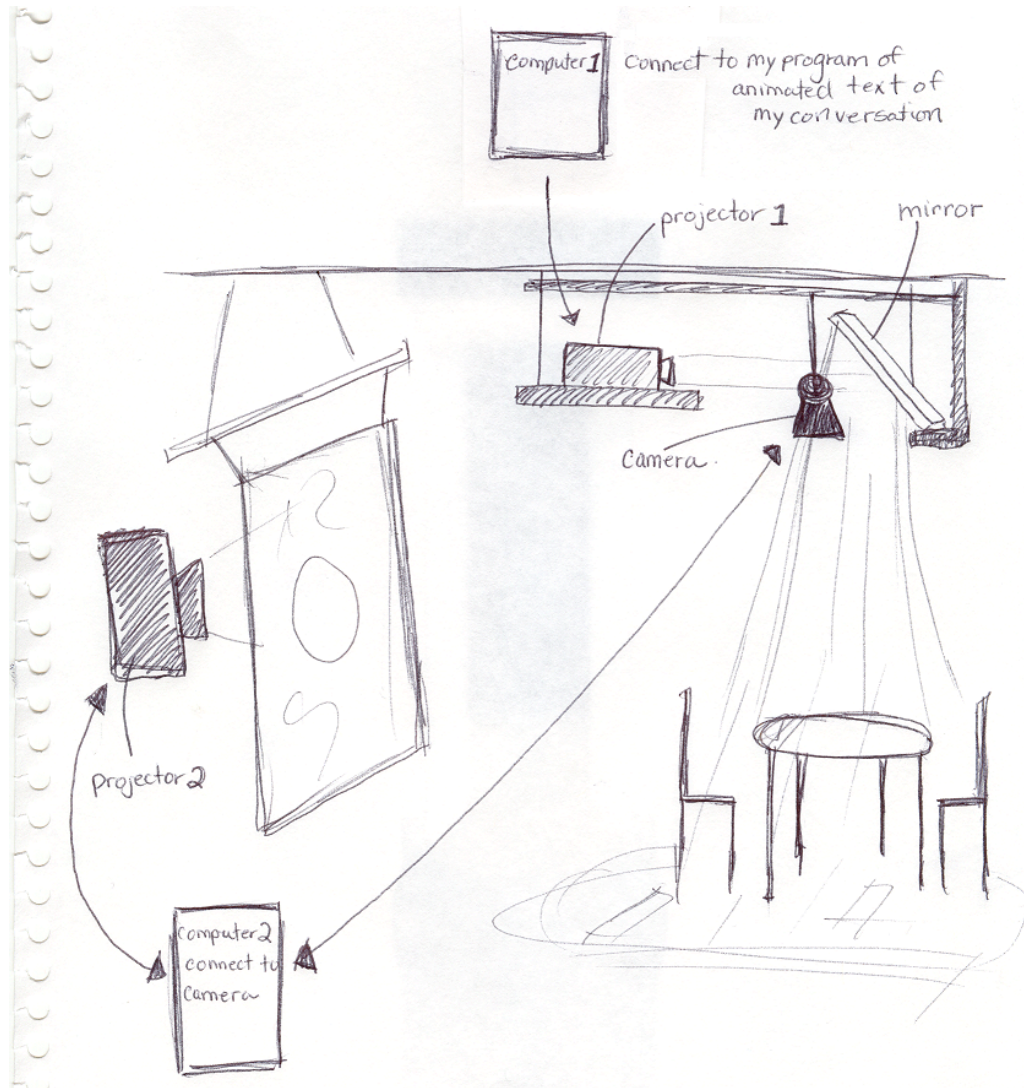 Computer 1
Connect to my program of
animated text of
my conversation
projector 1
mirror
Camera.
projector 2
Computer 2
connect to
Camera